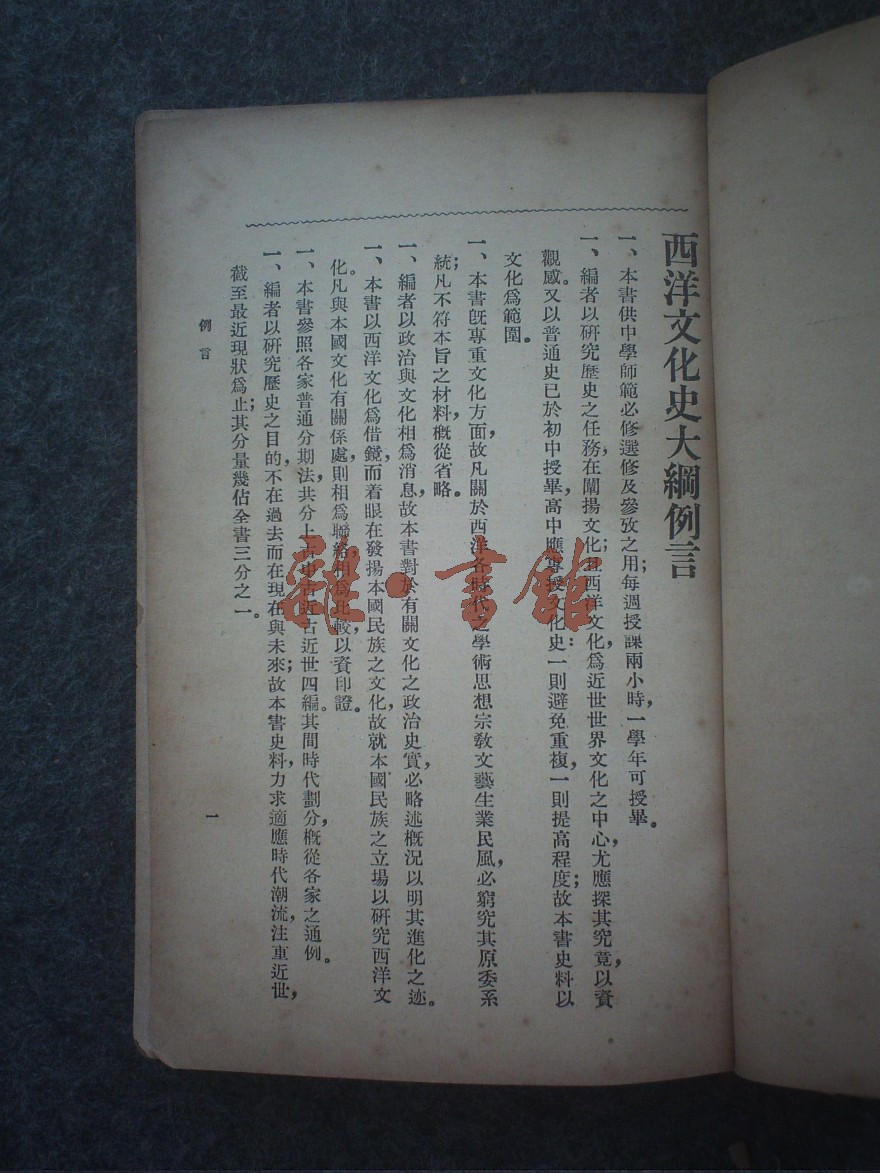 西洋文化史大綱例言
一、本書供中學師範必修選修及參攷之用；每週授課兩小時，一學年可授畢。
一、編者以研究歷史之任務，在闡揚文化；且西洋文化，爲近世世界文化之中心，尤應探其究竟，以資
觀感。又以普通史已於初中授畢，高中應專授文化史：一則避免重複，一則提高程度；故本書史料以
文化爲範圍。
一、本書旣專重文化方面，故凡關於西洋各時代之學術思想宗敎文藝生業民風，必窮究其原委系
統；凡不符本旨之材料，槪從省略。
一、編者以政治與文化相爲消息，故本書對於有關文化之政治史實，必略述槪況以明其進化之迹。
一、本書以西洋文化爲借鏡，而着眼在發揚本國民族之文化，故就本國民族之立場以研究西洋文
化。凡與本國文化有關係處，則相爲聯絡，相爲比較以資印證。
一、本書參照各家普通分期法，共分上古中古近古近世四編。其間時代劃分，槪從各家之通例。
一、編者以研究歷史之目的，不在過去而在現在與未來；故本書史料，力求適應時代潮流，注重近世，
截至最近現狀爲止；其分量幾佔全書三分之一。
例言
一
雜·書館